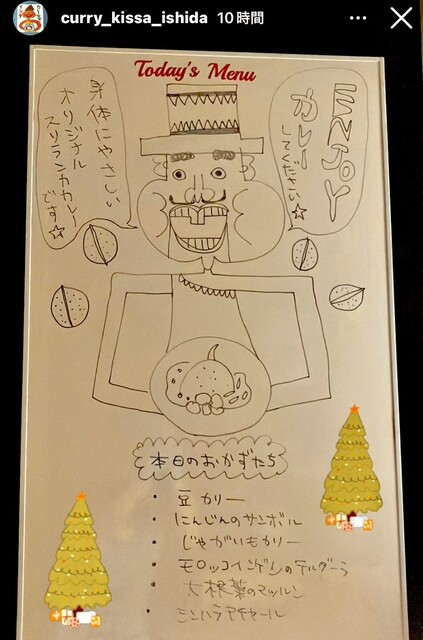 curry_kissa_ishida 10時間
Today's Menu
ENJOY
カレー
してください☆
身体にやさしい
オリジナル
スリランカカレー
です☆
本日のおかずたち
・豆カリー
・にんじんのサンボル
・じゃがいもカリー
・モロッコインゲンのテルダーラ
・大根葉のマッルン
・シンハラアチャール